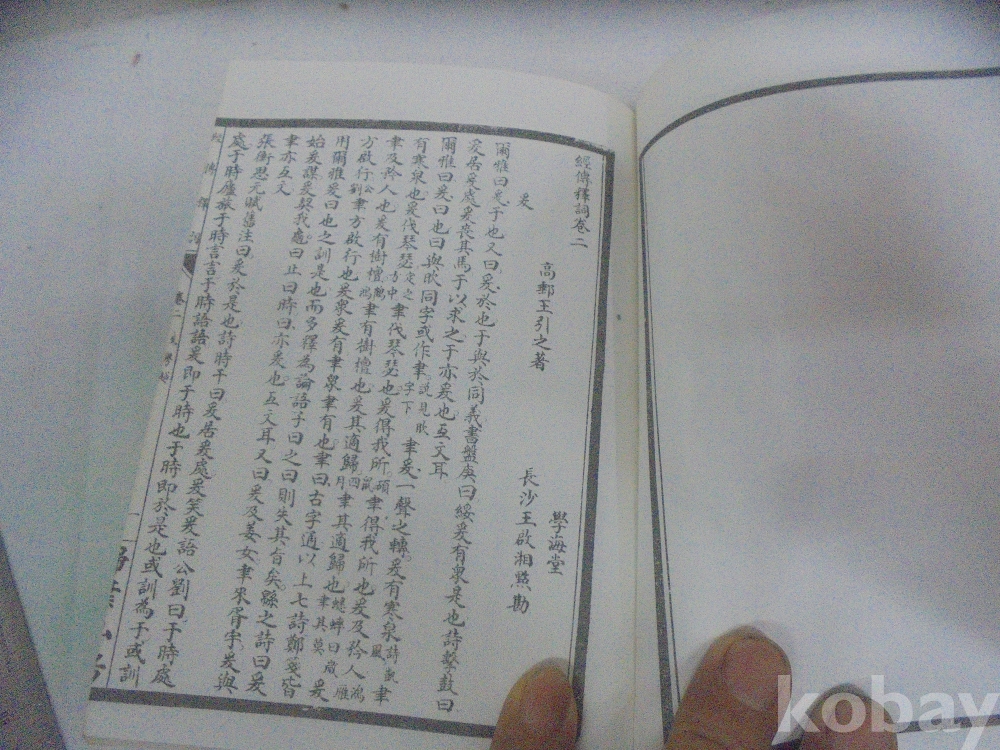 經傳釋詞卷二
學海堂
高郵王引之著
長沙王啟湘點勘
爰
爾雅曰爰于也又曰爰於也于與於同義書盤庚曰綏爰有衆是也詩擊鼓曰
爰居爰處爰喪其馬于以求之于亦爰也互文耳
爾雅曰爰曰也曰與欥同字或作聿說見欥字下聿爰一聲之轉爰有寒泉詩凱風聿
有寒泉也爰伐琴瑟定之方中聿伐琴瑟也爰得我所碩鼠聿得我所也爰及矜人鴻雁
聿及矜人也爰有樹檀鶴鳴聿有樹檀也爰其適歸四月聿其適歸也蟋蟀曰歲聿其莫爰
方啟行公劉聿方啟行也爰衆爰有聿衆聿有也聿曰古字通以上七詩鄭箋皆
用爾雅爰曰也之訓是也而多釋為論語子曰之曰則失其旨矣緜之詩曰爰
始爰謀爰契我龜曰止曰時曰亦爰也互文耳又曰爰及姜女聿來胥宇爰與
聿亦互文
張衡思元賦舊注曰爰於是也詩斯干曰爰居爰處爰笑爰語公劉曰于時處
處于時廬旅于時言言于時語語爰即于時也于時即於是也或訓為于或訓
經傳釋詞
卷二
一
kobay